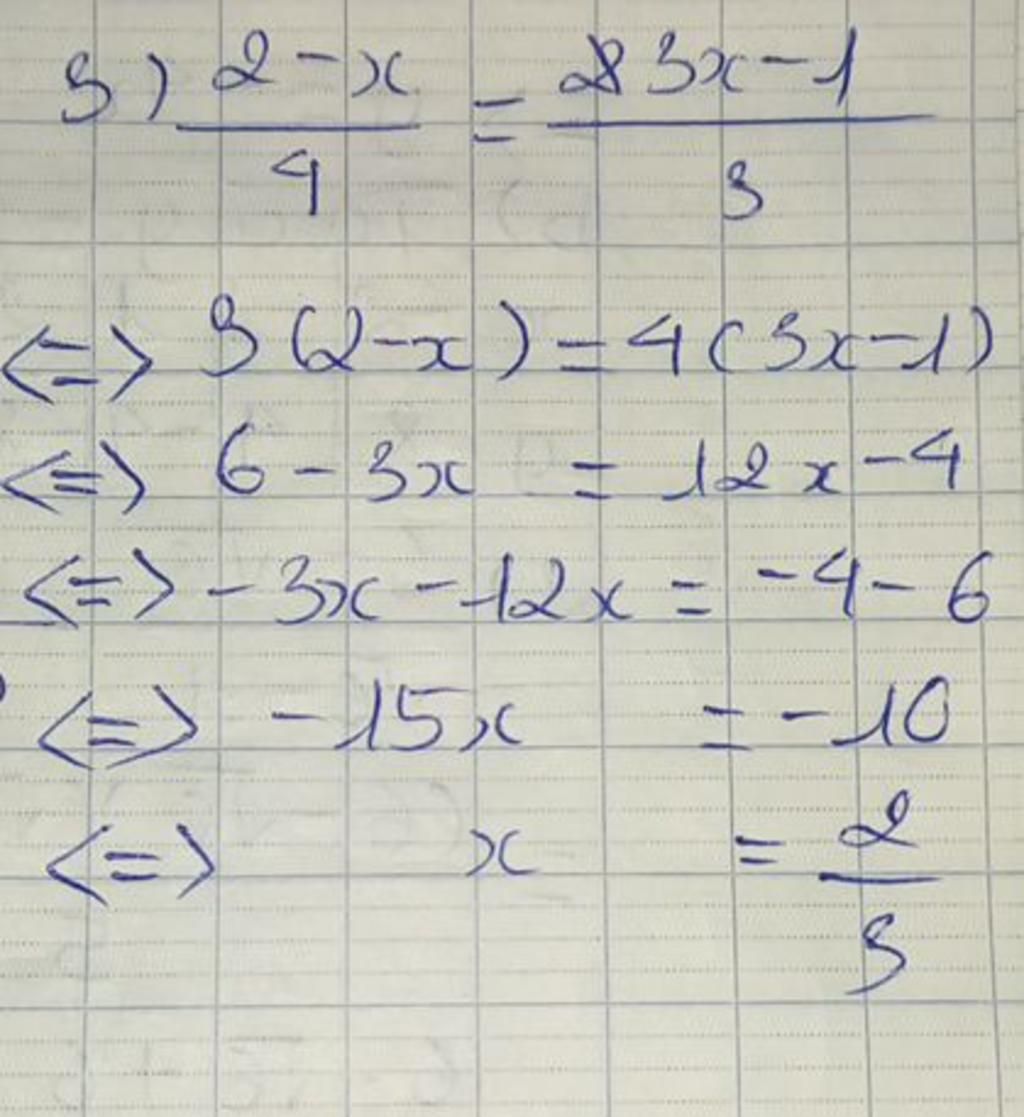 3) (2-x)/4 = (3x-1)/3
<=> 3(2-x) = 4(3x-1)
<=> 6 - 3x = 12x - 4
<=> -3x - 12x = -4 - 6
<=> -15x = -10
<=> x = 2/3